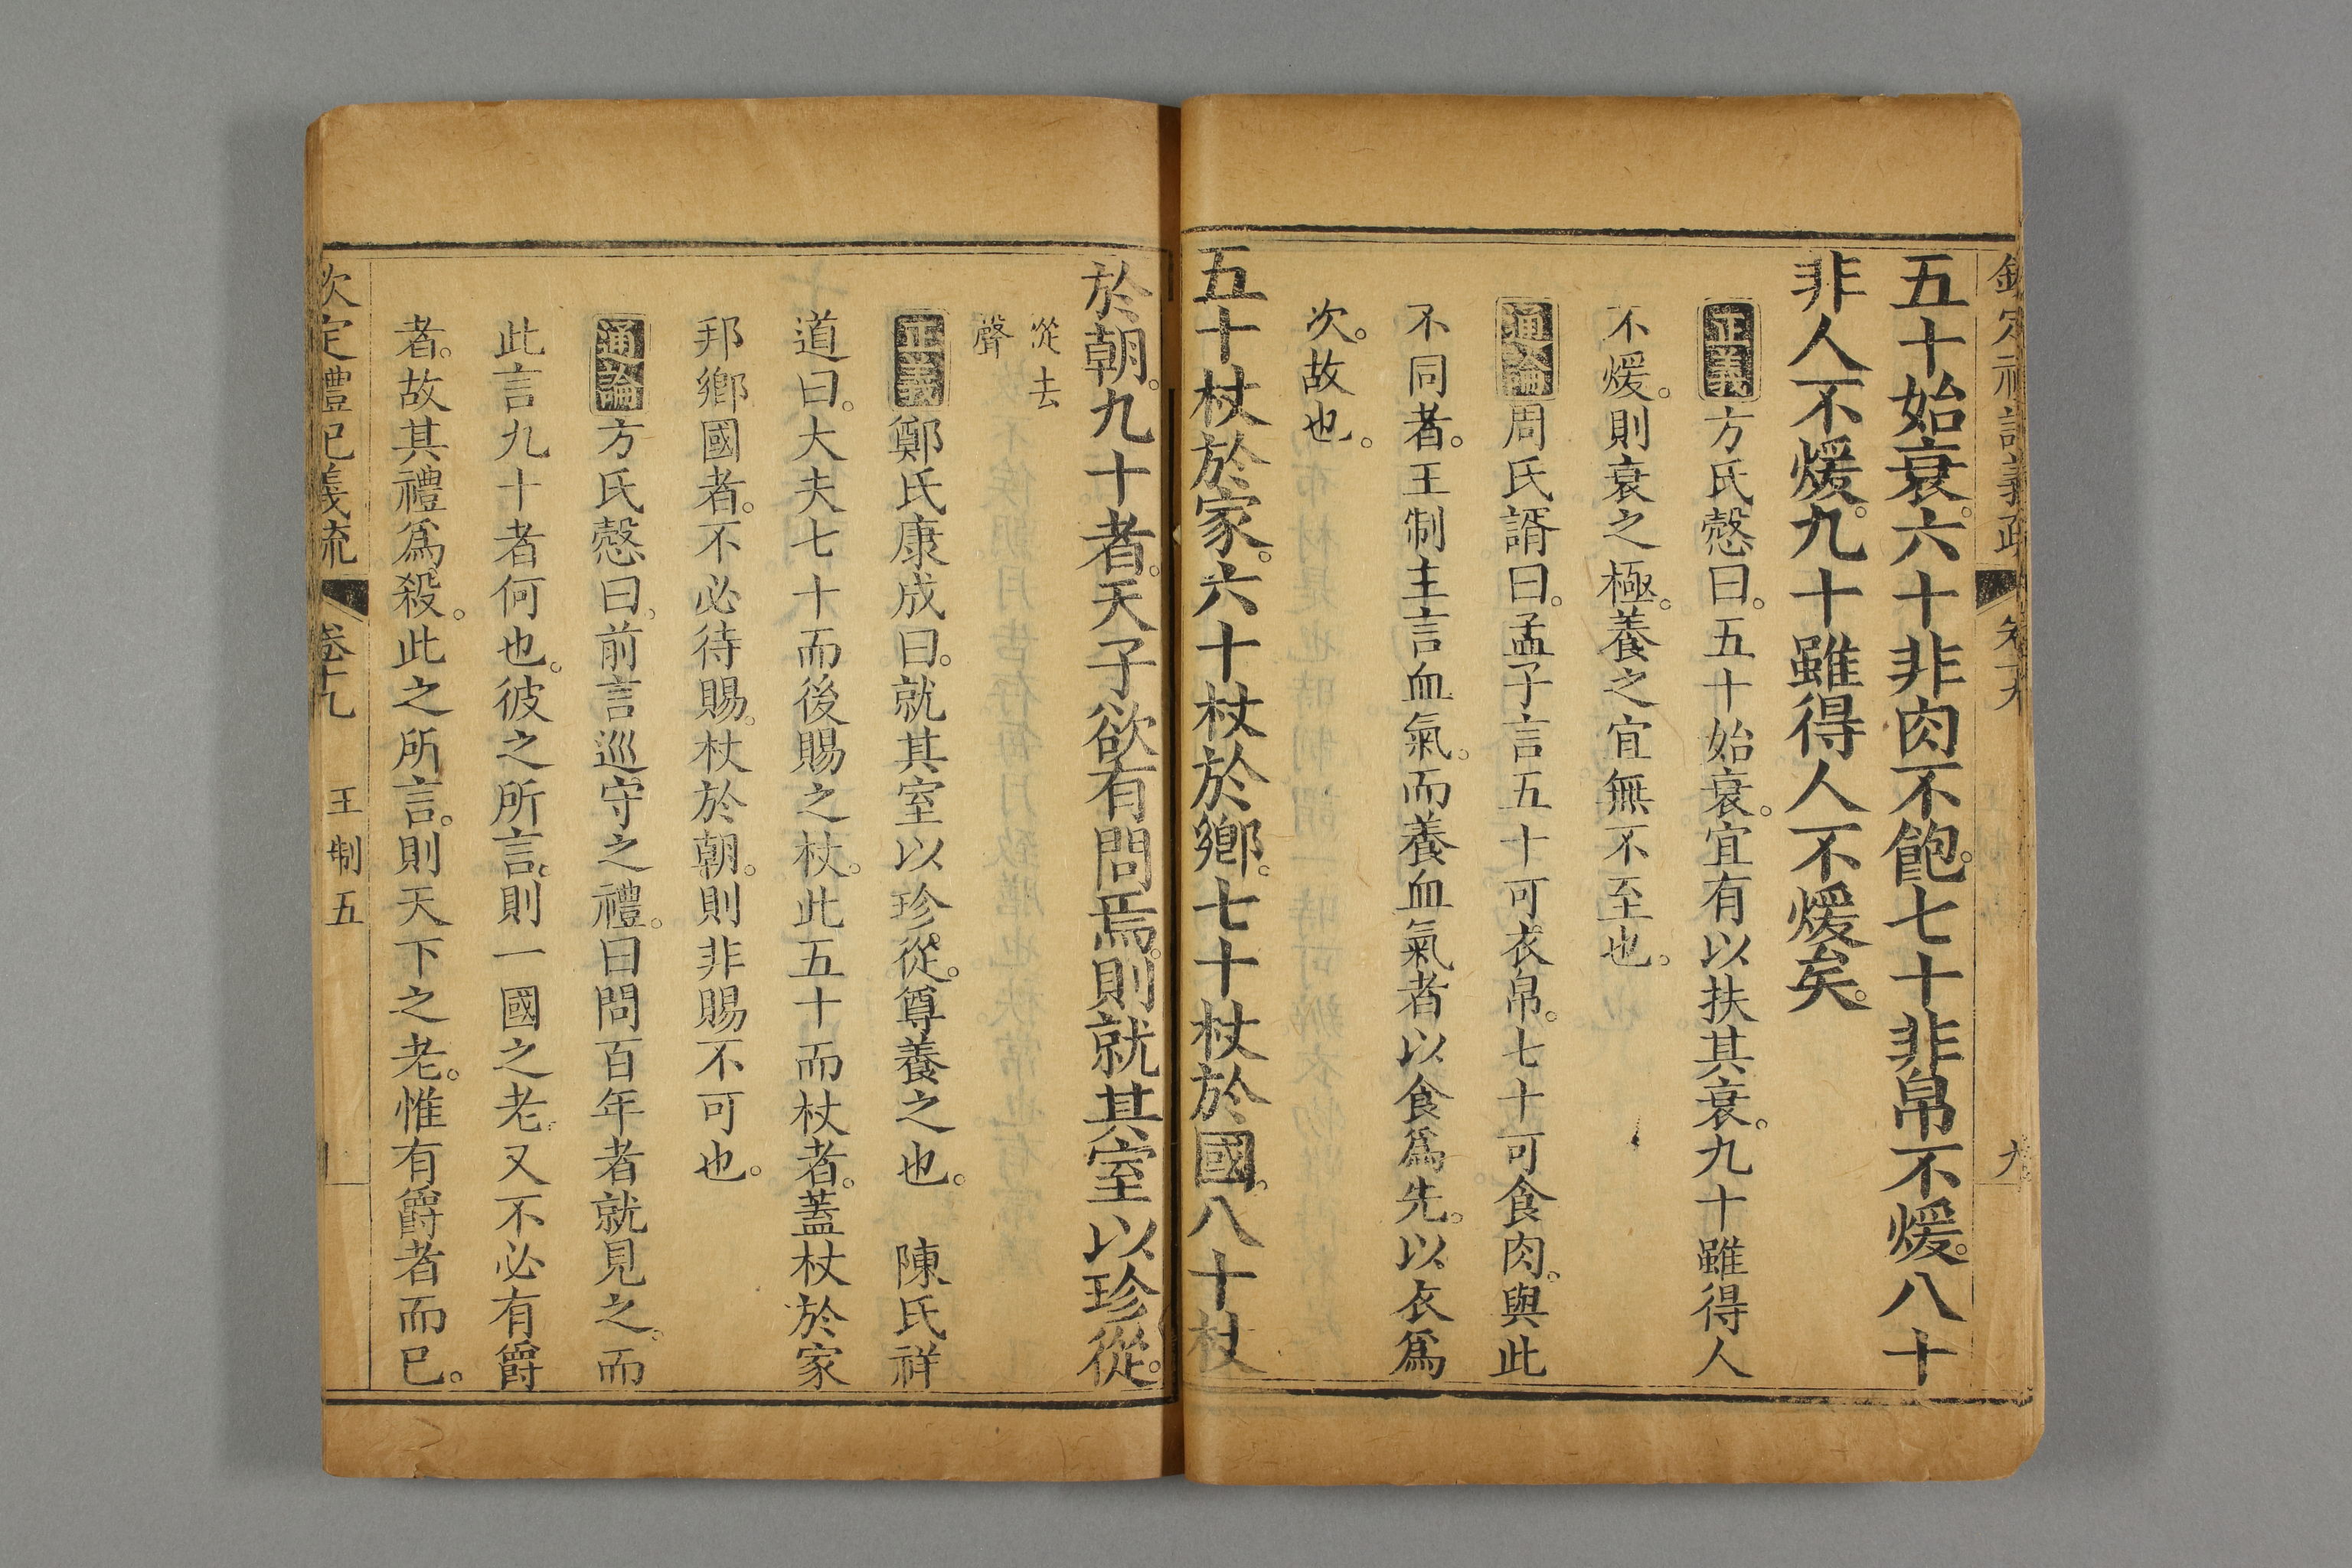 五十始衰。六十非肉不飽。七十非帛不煖。八十
非人不煖。九十雖得人不煖矣。
正義方氏慤曰。五十始衰。宜有以扶其衰。九十雖得人
不煖。則衰之極。養之宜無不至也。
通論周氏諝曰。孟子言五十可衣帛。七十可食肉。與此
不同者。王制主言血氣。而養血氣者以食爲先。以衣爲
次。故也。
五十杖於家。六十杖於鄉。七十杖於國。八十杖
於朝。九十者。天子欲有問焉。則就其室以珍從。
從去
聲
正義鄭氏康成曰。就其室以珍。從。尊養之也。 陳氏祥
道曰。大夫七十而後賜之杖。此五十而杖者。蓋杖於家
邦鄉國者。不必待賜。杖於朝。則非賜不可也。
通論方氏慤曰。前言巡守之禮。曰問百年者就見之。而
此言九十者何也。彼之所言。則一國之老。又不必有爵
者。故其禮爲殺。此之所言。則天下之老。惟有爵者而已。
欽定禮記義疏 卷十九 王制五